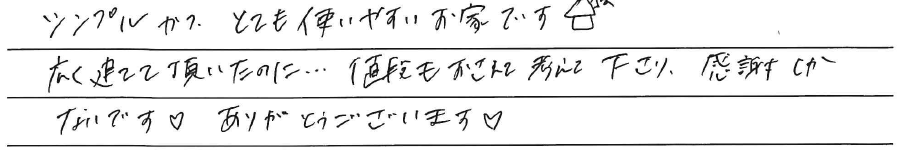 シンプルかつ とても使いやすいお家です
広く建てて頂いたのに… 値段もおさえて考えて下さり、感謝しか
ないです♡ ありがとうございます♡